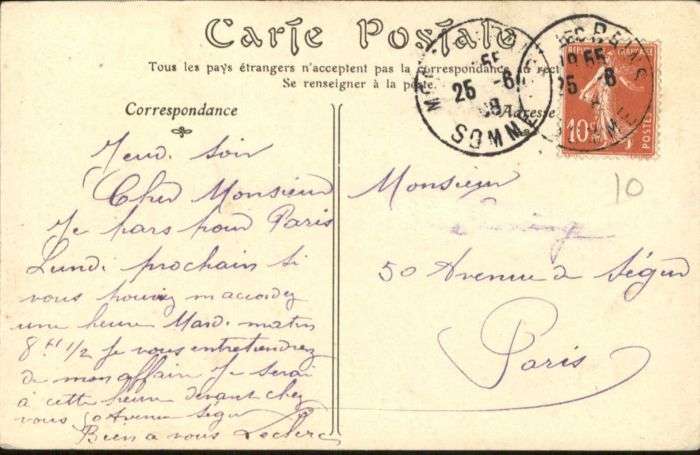 Carte Postale
Tous les pays étrangers n'acceptent pas la correspondance au recto
Se renseigner à la poste.
Correspondance
Adresse
Jeudi soir
Cher Monsieur
Je pars pour Paris
Lundi prochain si
vous pouviez m'accordez
une heure Mardi matin
8 H 1/2 je vous entretiendrez
de mon affaire Je serai
à cette heure devant chez
vous 50 Avenue Ségur
Bien à vous Leclerc
Monsieur
50 Avenue de Ségur
Paris
25 -6
08
SOMME
25 6
10
POSTES
10